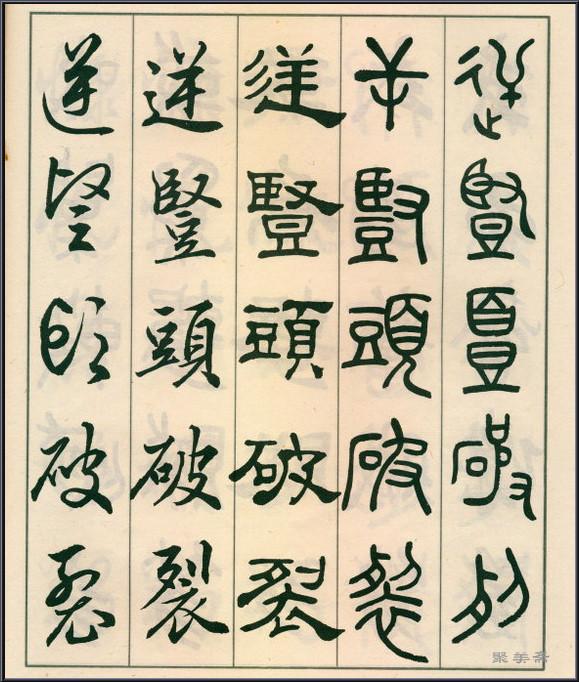 逆豎頭破裂
逆豎頭破裂
逆豎頭破裂
逆豎頭破裂
逆豎頭破裂
聚美斋